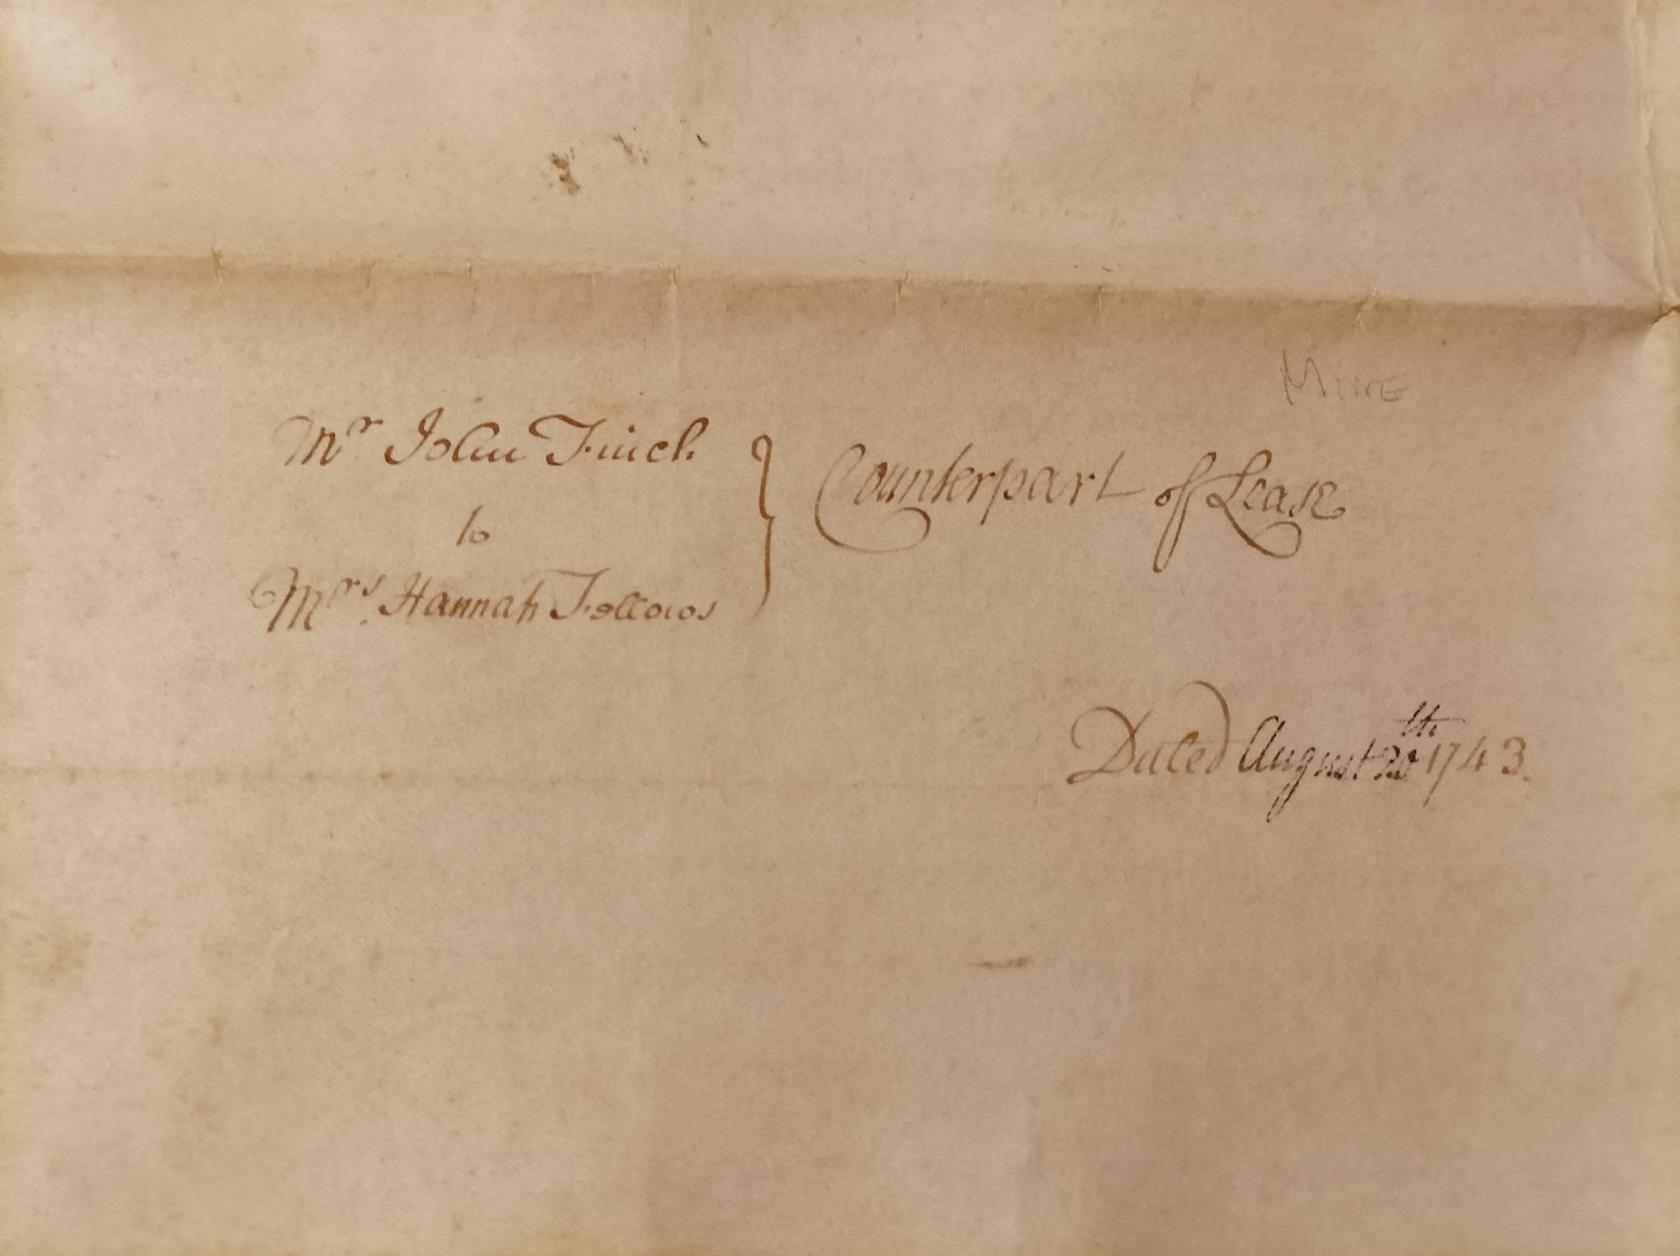 Mine
Mr John Finch
to
Mrs. Hannah Fellows
Counterpart of Lease
Dated August 20th 1743.